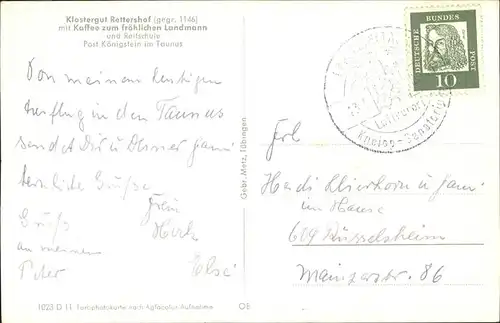 Klostergut Rettershof (gegr. 1146)
mit Kaffee zum fröhlichen Landmann
und Reitschule
Post Königstein im Taunus
Von meinem heutigen
Ausflug in den Taunus
sendet Dir u Deiner Fam
herzliche Grüße
Grüß
an meinen
Peter
Else
1023 D 11 Farbphotokarte nach Agfacolor-Aufnahme
Gebr. Metz, Tübingen
DEUTSCHE BUNDESPOST
10
Luftkurort
Kneipp-Sanatorium
Frl
Heidi u Fam
im Hause
609 Rüsselsheim
Mainzerstr. 86